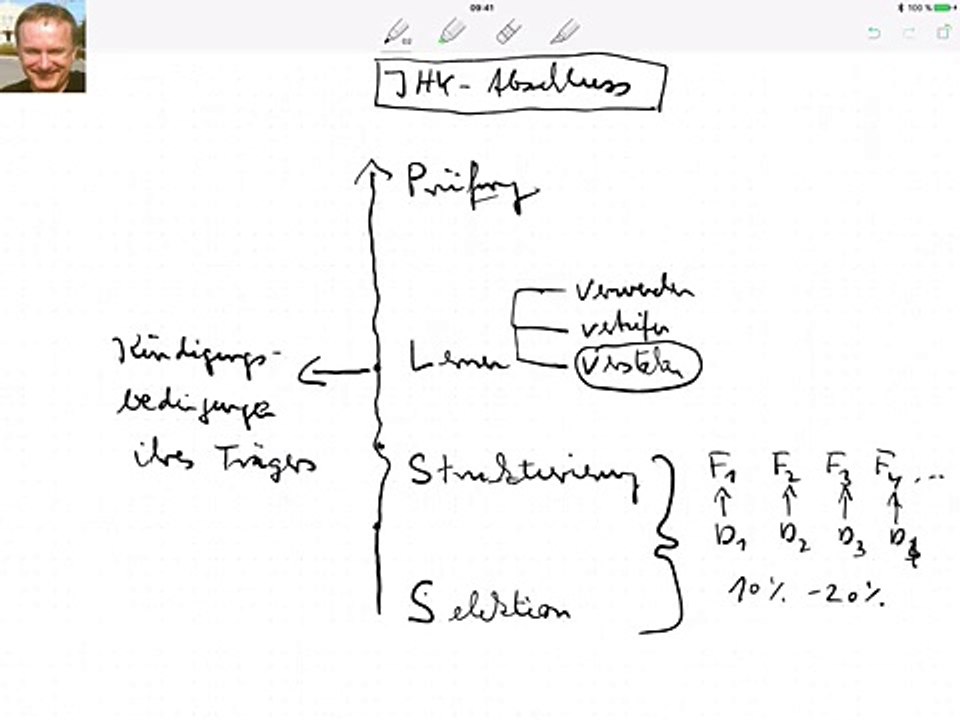 09:41
100 %
02
IHK-Abschluss
Prüfung
Verwerden
vertiefen
Lernen
Verstehen
Kündigungs-
bedingungen
ihres Trägers
Strukturierung
F1 F2 F3 F4 ...
D1 D2 D3 D4
10% - 20%
Selektion